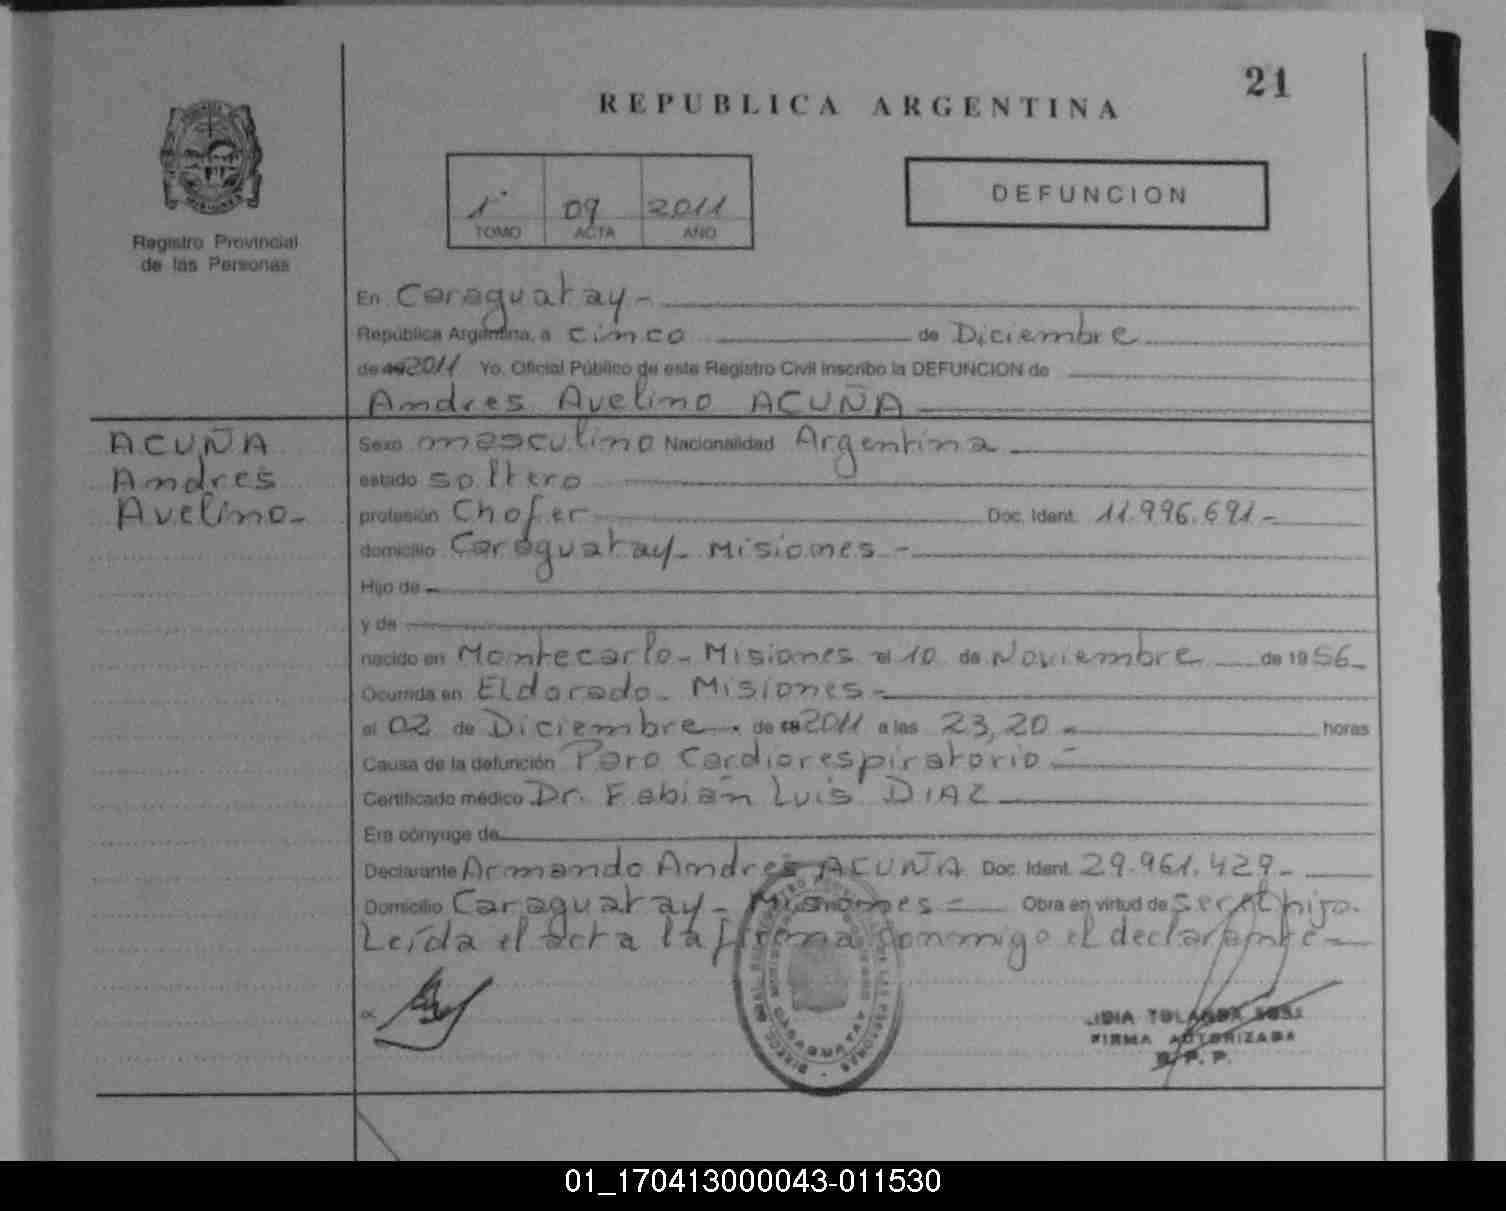 21
REPUBLICA ARGENTINA
1° 09 2011
TOMO ACTA AÑO
DEFUNCION
Registro Provincial
de las Personas
En Caraguatay -
República Argentina, a cinco de Diciembre
de 19 2011 Yo, Oficial Público de este Registro Civil inscribo la DEFUNCION de
Andres Avelino ACUÑA
ACUÑA
Andres
Avelino-
Sexo masculino Nacionalidad Argentina
estado soltero
profesión Chofer Doc. Ident. 11.996.691-
domicilio Caraguatay- Misiones -
Hijo de -
y de
nacido en Montecarlo- Misiones el 10 de Noviembre de 1956-
Ocurrida en Eldorado- Misiones-
el 02 de Diciembre de 19 2011 a las 23,20 - horas
Causa de la defunción Paro Cardiorespiratorio -
Certificado médico Dr. Fabián Luis DIAZ
Era cónyuge de
Declarante Armando Andres ACUÑA Doc. Ident. 29.961.429-
Domicilio Caraguatay- Misiones - Obra en virtud de ser el hijo.
Leída el acta la firma conmigo el declarante-
CARAGUATAY
FIRMA AUTORIZADA
R. P. P.
01_170413000043-011530